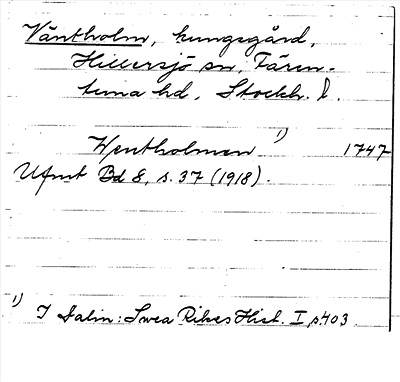 Väntholm, kungsgård,
Hillersjö sn, Fären-
tuna hd, Stockh. l.
Wentholmen ¹) 1747
Ufmt Bd 8, s. 37 (1918).
¹) I Dalin: Swea Rikes Hist. I s. 403